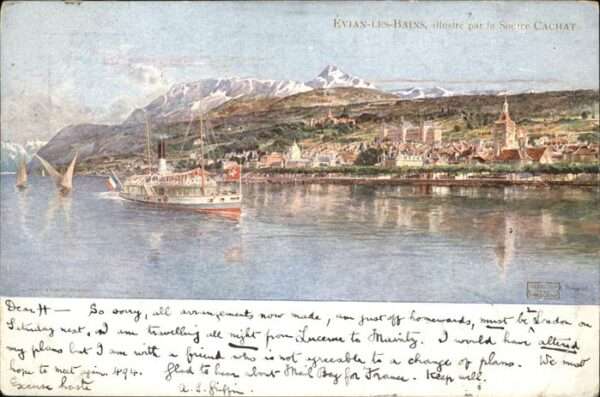 ÉVIAN-LES-BAINS, illustré par la Source CACHAT
Dear H — So sorry, all arrangements now made, am just off homewards, must be London on
Saturday next, I am travelling all night from Lucerne to. I would have altered
my plans but I am with a friend who is not agreeable to a change of plans. We must
hope to meet again. Glad to hear about Mail Bag for France. Keep well.
Excuse haste